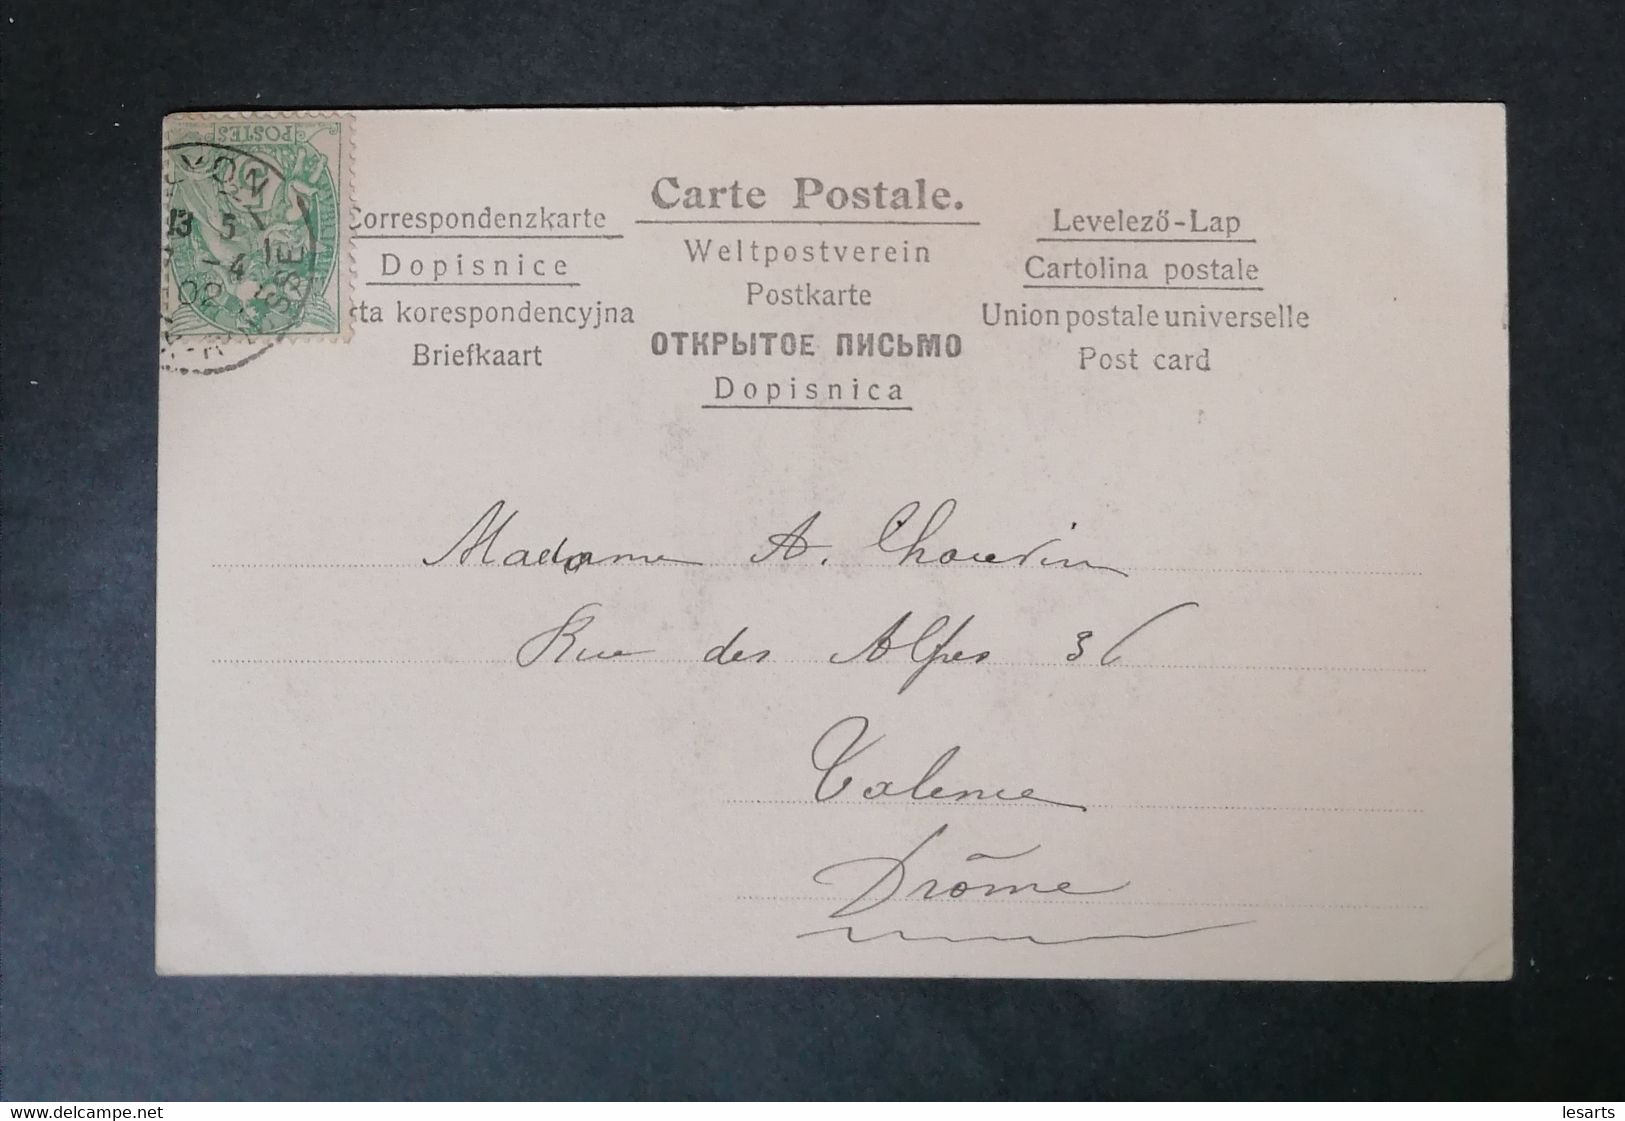 POSTES
LYON
13 5
4
02
Carte Postale.
Correspondenzkarte
Dopisnice
sta korespondencyjna
Briefkaart
Weltpostverein
Postkarte
ОТКРЫТОЕ ПИСЬМО
Dopisnica
Levelező-Lap
Cartolina postale
Union postale universelle
Post card
Madame A. Chouvin
Rue des Alpes 36
Valence
Drôme
delcampe.net
lesarts